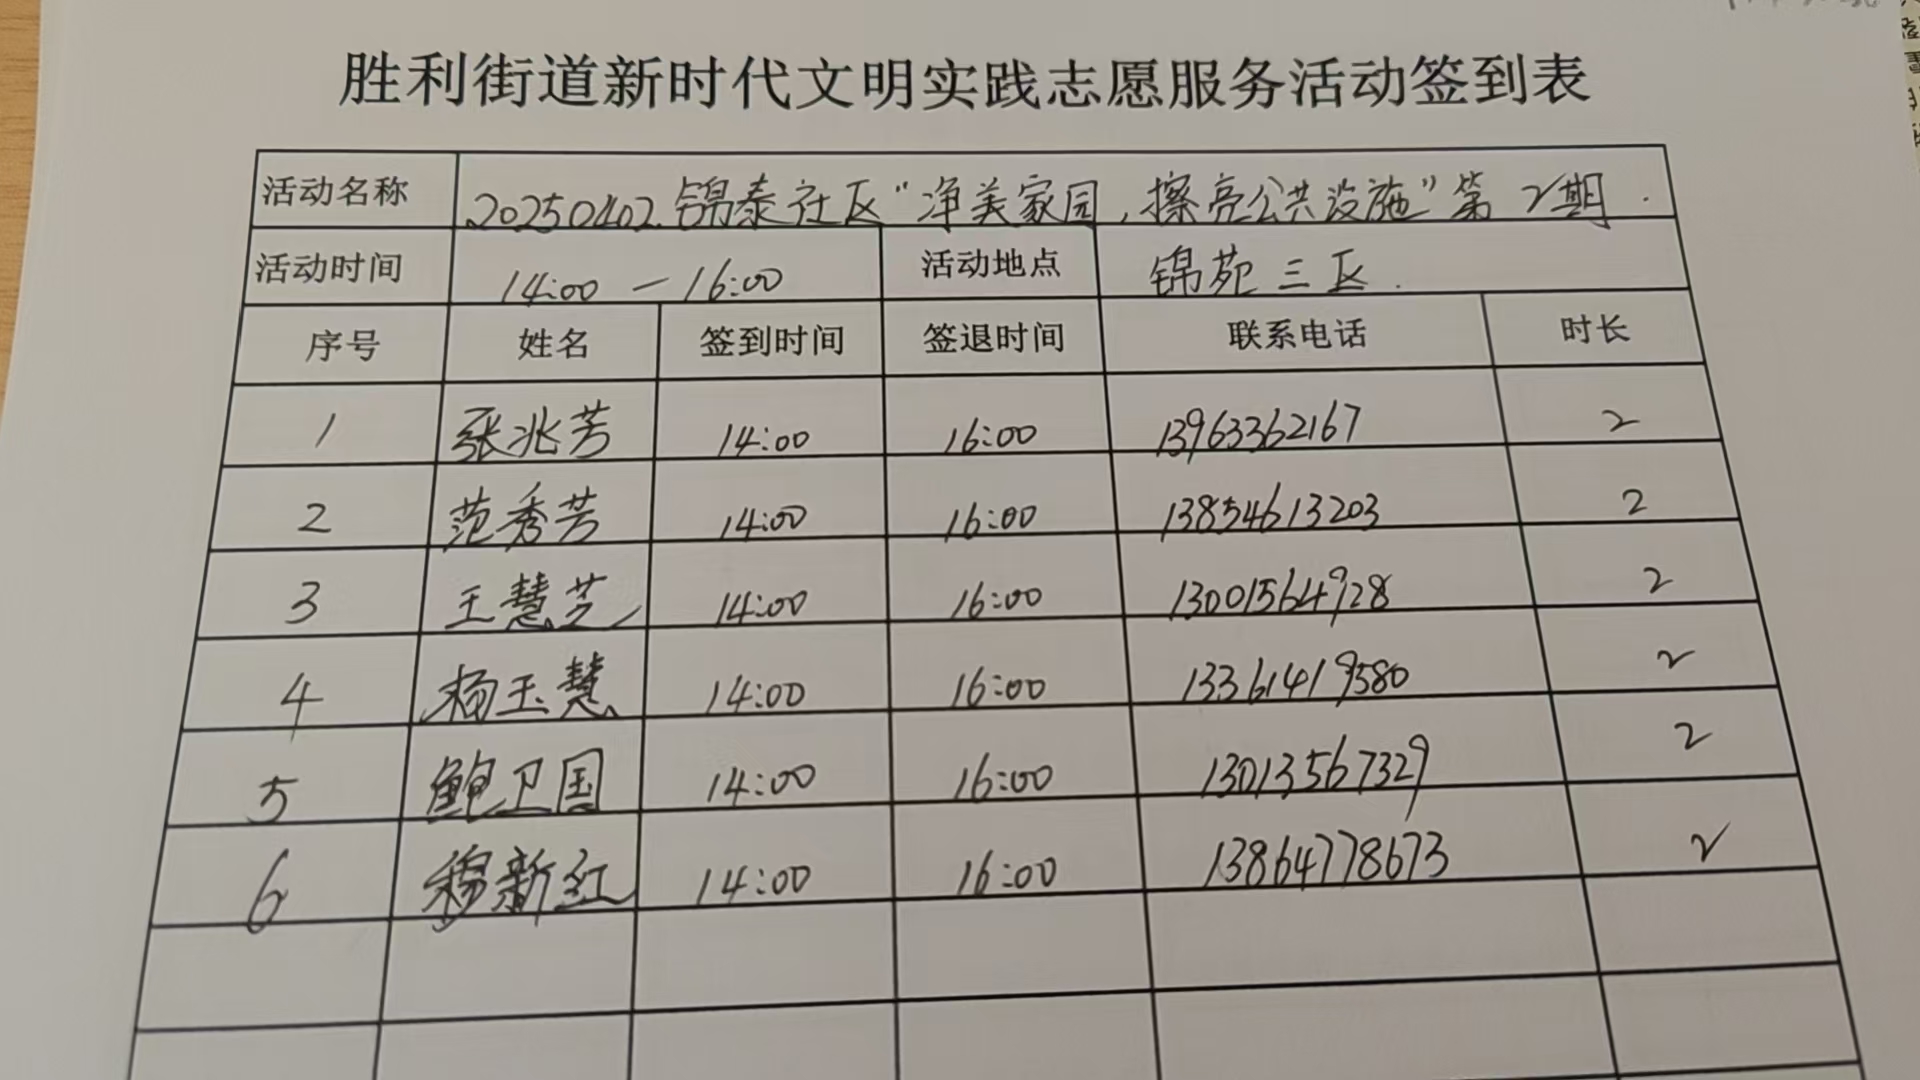 胜利街道新时代文明实践志愿服务活动签到表
活动名称 20250402.锦泰社区“净美家园,擦亮公共设施”第2期.
活动时间 14:00 — 16:00 活动地点 锦苑三区.
序号 姓名 签到时间 签退时间 联系电话 时长
1 张兆芳 14:00 16:00 13963362167 2
2 范秀芳 14:00 16:00 13854613203 2
3 王慧芝 14:00 16:00 13001564928 2
4 杨玉慧 14:00 16:00 13361419580 2
5 鲍卫国 14:00 16:00 13013567329 2
6 穆新红 14:00 16:00 13864778673 2